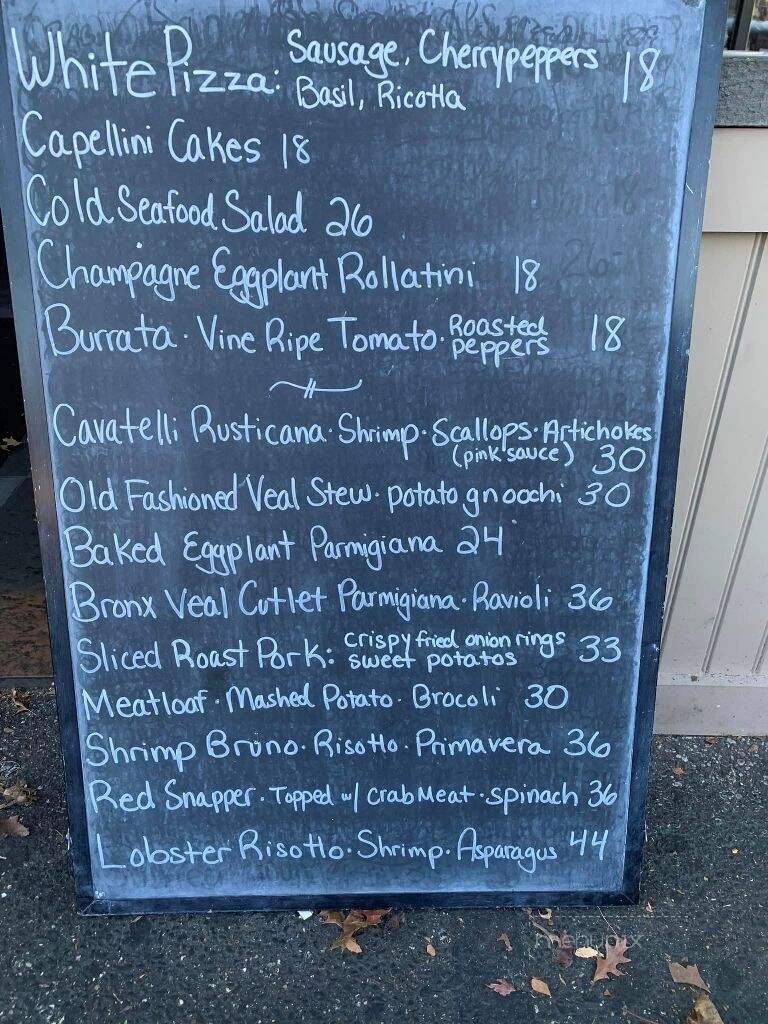 White Pizza: Sausage, Cherrypeppers 18
Basil, Ricotta
Capellini Cakes 18
Cold Seafood Salad 26
Champagne Eggplant Rollatini 18
Burrata · Vine Ripe Tomato · Roasted peppers 18
Cavatelli Rusticana · Shrimp · Scallops · Artichokes
(pink sauce) 30
Old Fashioned Veal Stew · potato gnocchi 30
Baked Eggplant Parmigiana 24
Bronx Veal Cutlet Parmigiana · Ravioli 36
Sliced Roast Pork: crispy fried onion rings 33
sweet potatos
Meatloaf · Mashed Potato · Brocoli 30
Shrimp Bruno · Risotto · Primavera 36
Red Snapper · Topped w/ Crab Meat · spinach 36
Lobster Risotto · Shrimp · Asparagus 44
menupix